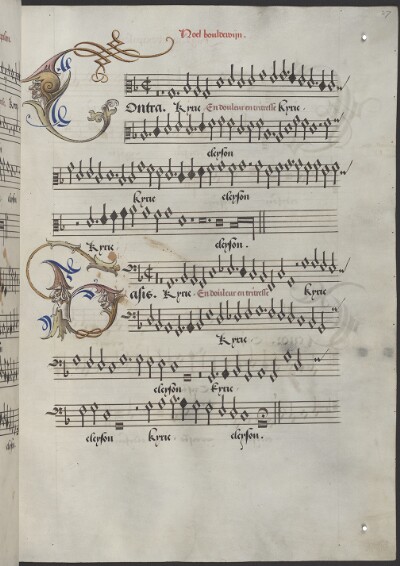 Noel bouldewijn.
27
Contra. Kyrie En douleur en tristesse Kyrie.
eleyson
Kyrie eleyson
Kyrie eleyson.
Basis. Kyrie En douleur en tristesse Kyrie
Kyrie
eleyson Kyrie
eleyson Kyrie eleyson.